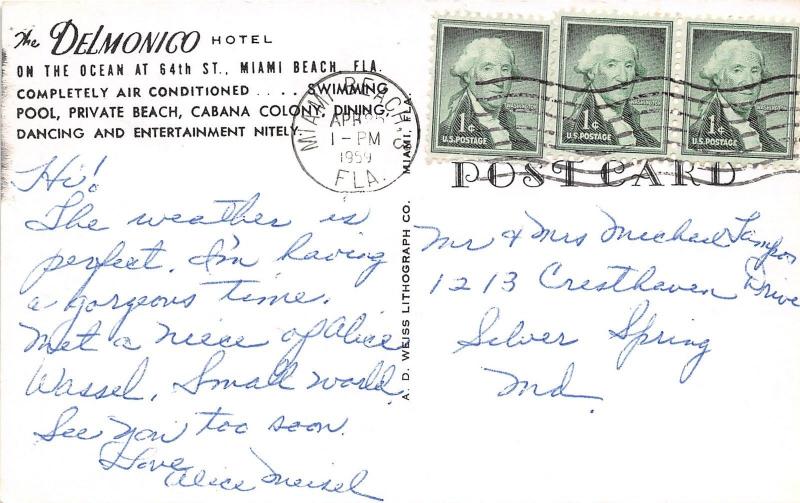 The DELMONICO HOTEL
ON THE OCEAN AT 64th ST., MIAMI BEACH, FLA.
COMPLETELY AIR CONDITIONED .... SWIMMING
POOL, PRIVATE BEACH, CABANA COLONY, DINING,
DANCING AND ENTERTAINMENT NITELY.
MIAMI BEACH
APR 25
1-PM
1959
FLA.
1¢
WASHINGTON
U.S. POSTAGE
1¢
WASHINGTON
U.S. POSTAGE
1¢
WASHINGTON
U.S. POSTAGE
POST CARD
A. D. WEISS LITHOGRAPH CO. MIAMI, FLA.
Hi!
The weather is
perfect. I'm having
a gorgeous time.
Met a niece of Alice
Wassel. Small world.
See you too soon.
Love
Alice Meisel
Mr & Mrs Michael
1213 Cresthaven Drive
Silver Spring
Md.